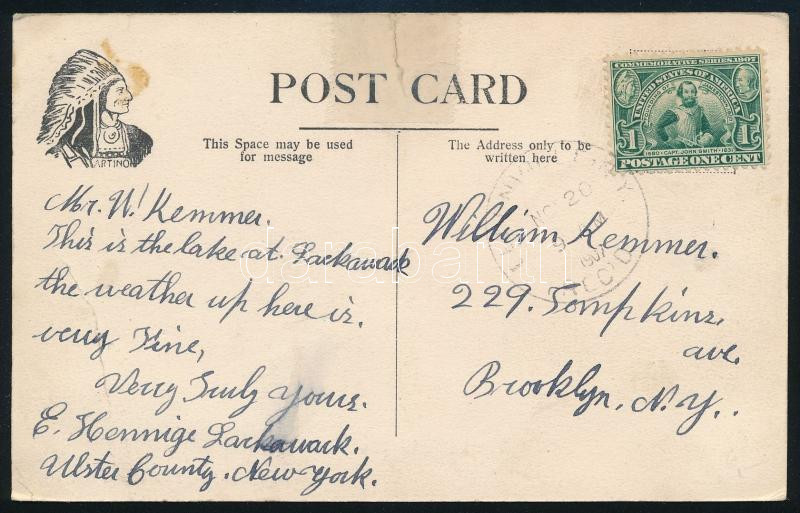 POST CARD
ARTINO
This Space may be used
for message
The Address only to be
written here
COMMEMORATIVE SERIES, 1907
UNITED STATES OF AMERICA
1 1
1580 · CAPT. JOHN SMITH · 1631
POSTAGE ONE CENT
20
9
1907
REC'D
Mr. W. Kemmer.
This is the lake at Lackawack
the weather up here is.
very Fine,
Very Truly yours.
E. Hennige Lackawack.
Ulster County. New York.
William Kemmer.
229. Tompkins.
ave.
Brooklyn. N.Y..
darabanth